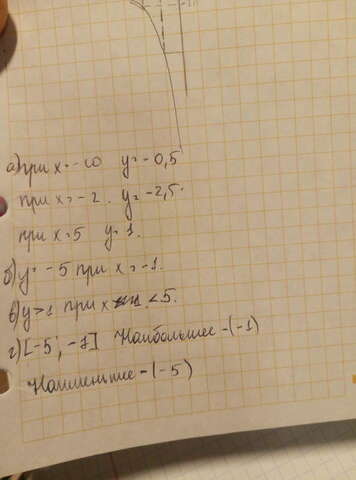 а) при x=-10 y=-0,5
при x=-2. y=-2,5.
при x=5 y=1.
б) y=-5 при x=-1.
в) y>1 при x <5.
г) [-5; -1] Наибольшее -(-1)
Наименьшее -(-5)